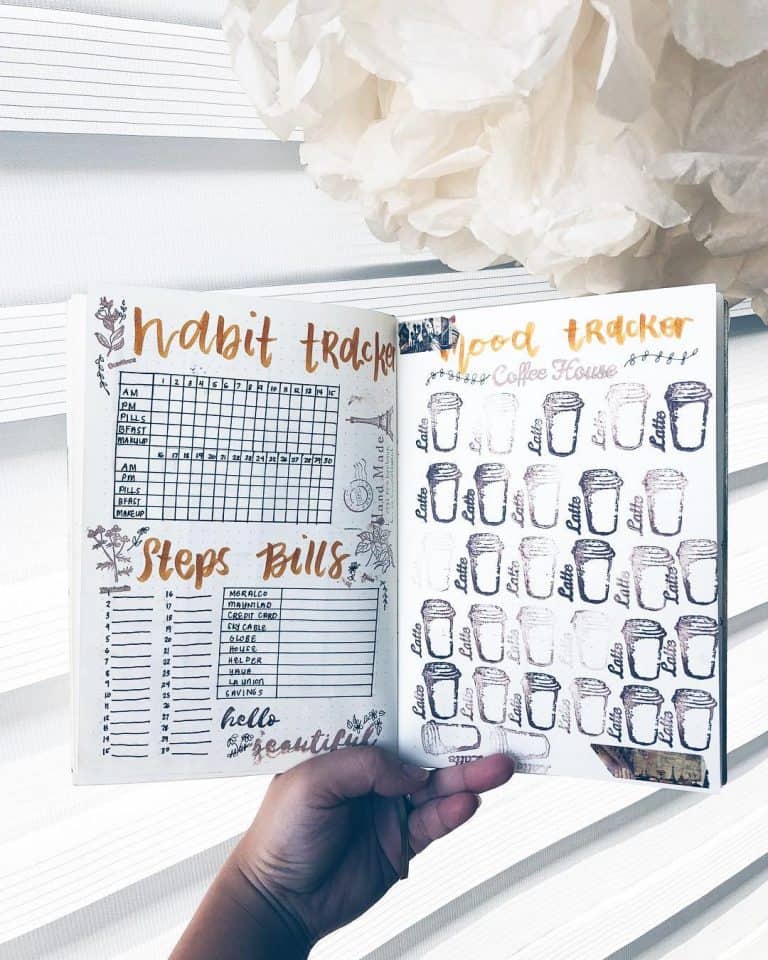 Habit tracker
1 2 3 4 5 6 7 8 9 10 11 12 13 14 15
AM
PM
PILLS
BFAST
MAKEUP
16 17 18 19 20 21 22 23 24 25 26 27 28 29 30
AM
PM
PILLS
BFAST
MAKEUP
Hand Made
Steps Bills
2 16
3 17
4 18
5 19
6 20
7 21
8 22
9 23
10 24
11 25
12 26
13 27
14 28
15 30
MERALCO
MAYNILAD
CREDIT CARD
SKY CABLE
GLOBE
HOUSE
HELPER
YAYA
LA UNION
SAVINGS
hello
beautiful
Mood tracker
Coffee House
Latte Latte Latte Latte Latte
Latte Latte Latte Latte Latte
Latte Latte Latte Latte
Latte Latte Latte Latte Latte
Latte Latte Latte Latte Latte Latte
Latte Latte